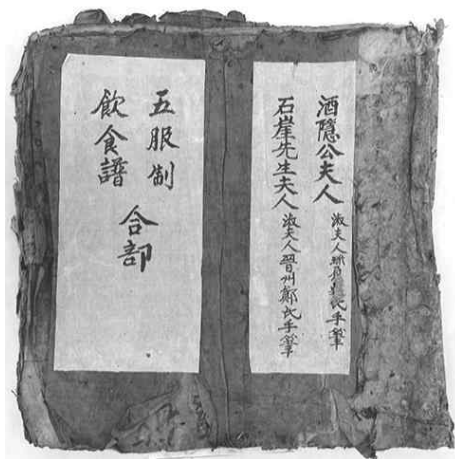 酒隱公夫人 淑夫人珎原氏手筆
石崖先生夫人 淑夫人晉州鄭氏手筆
五服制
飲食譜
合部